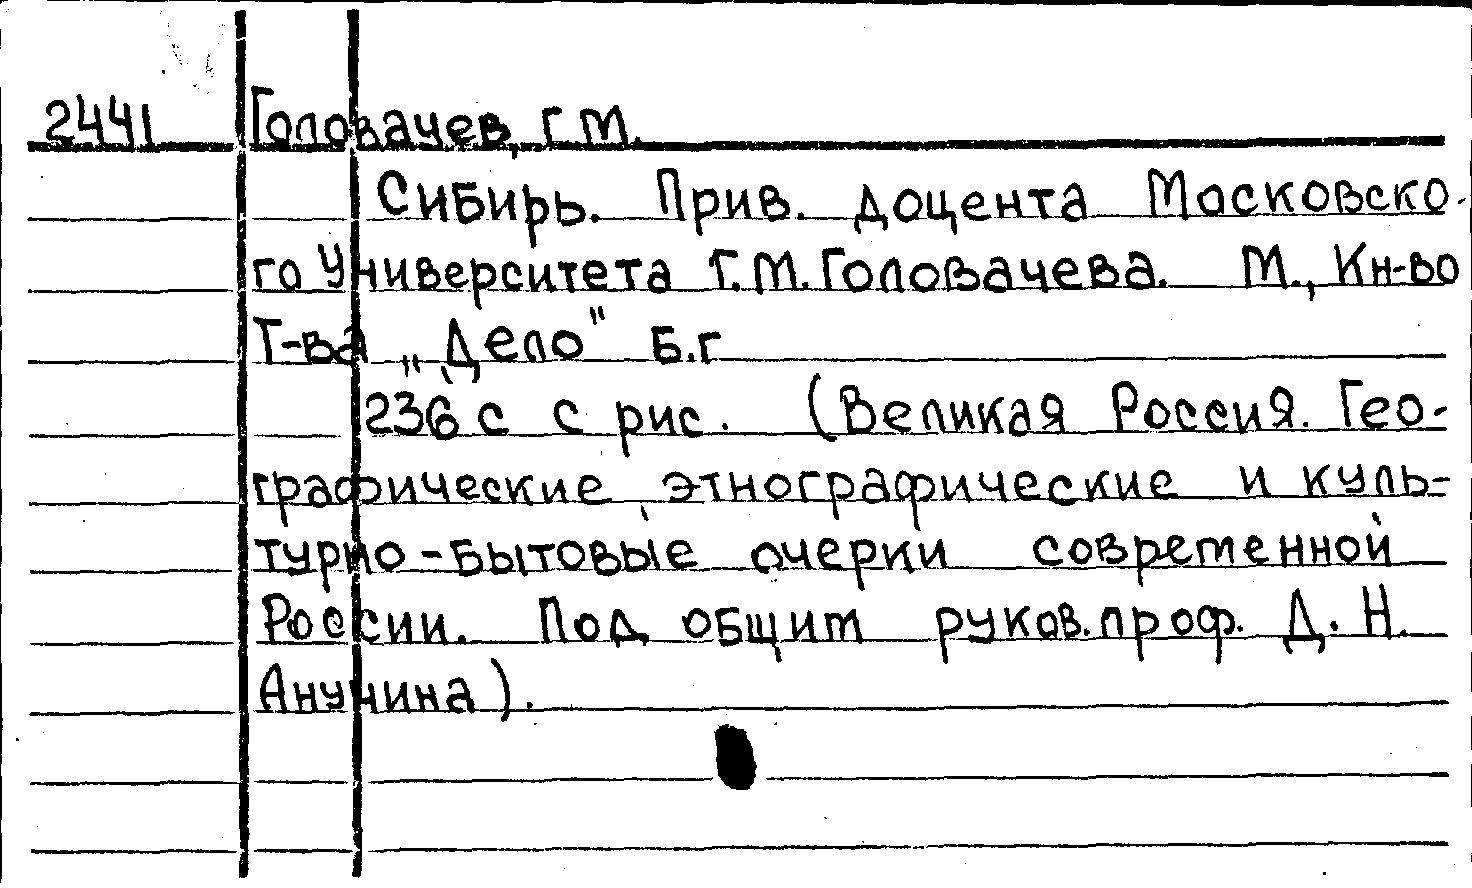 2441 Головачев, Г.М.
Сибирь. Прив. доцента Московско-
го Университета Г.М. Головачева. М., Кн-во
Т-ва „Дело" Б.г
236 с с рис. (Великая Россия. Гео-
графические, этнографические и куль-
турно-бытовые очерки современной
России. Под общим руков. проф. Д. Н.
Анучина).